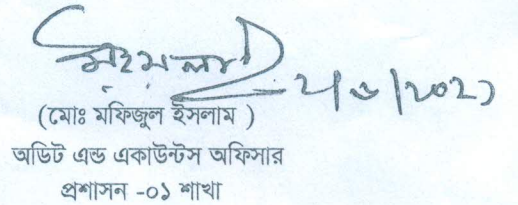 (মোঃ মফিজুল ইসলাম )
অডিট এন্ড একাউন্টস অফিসার
প্রশাসন -০১ শাখা